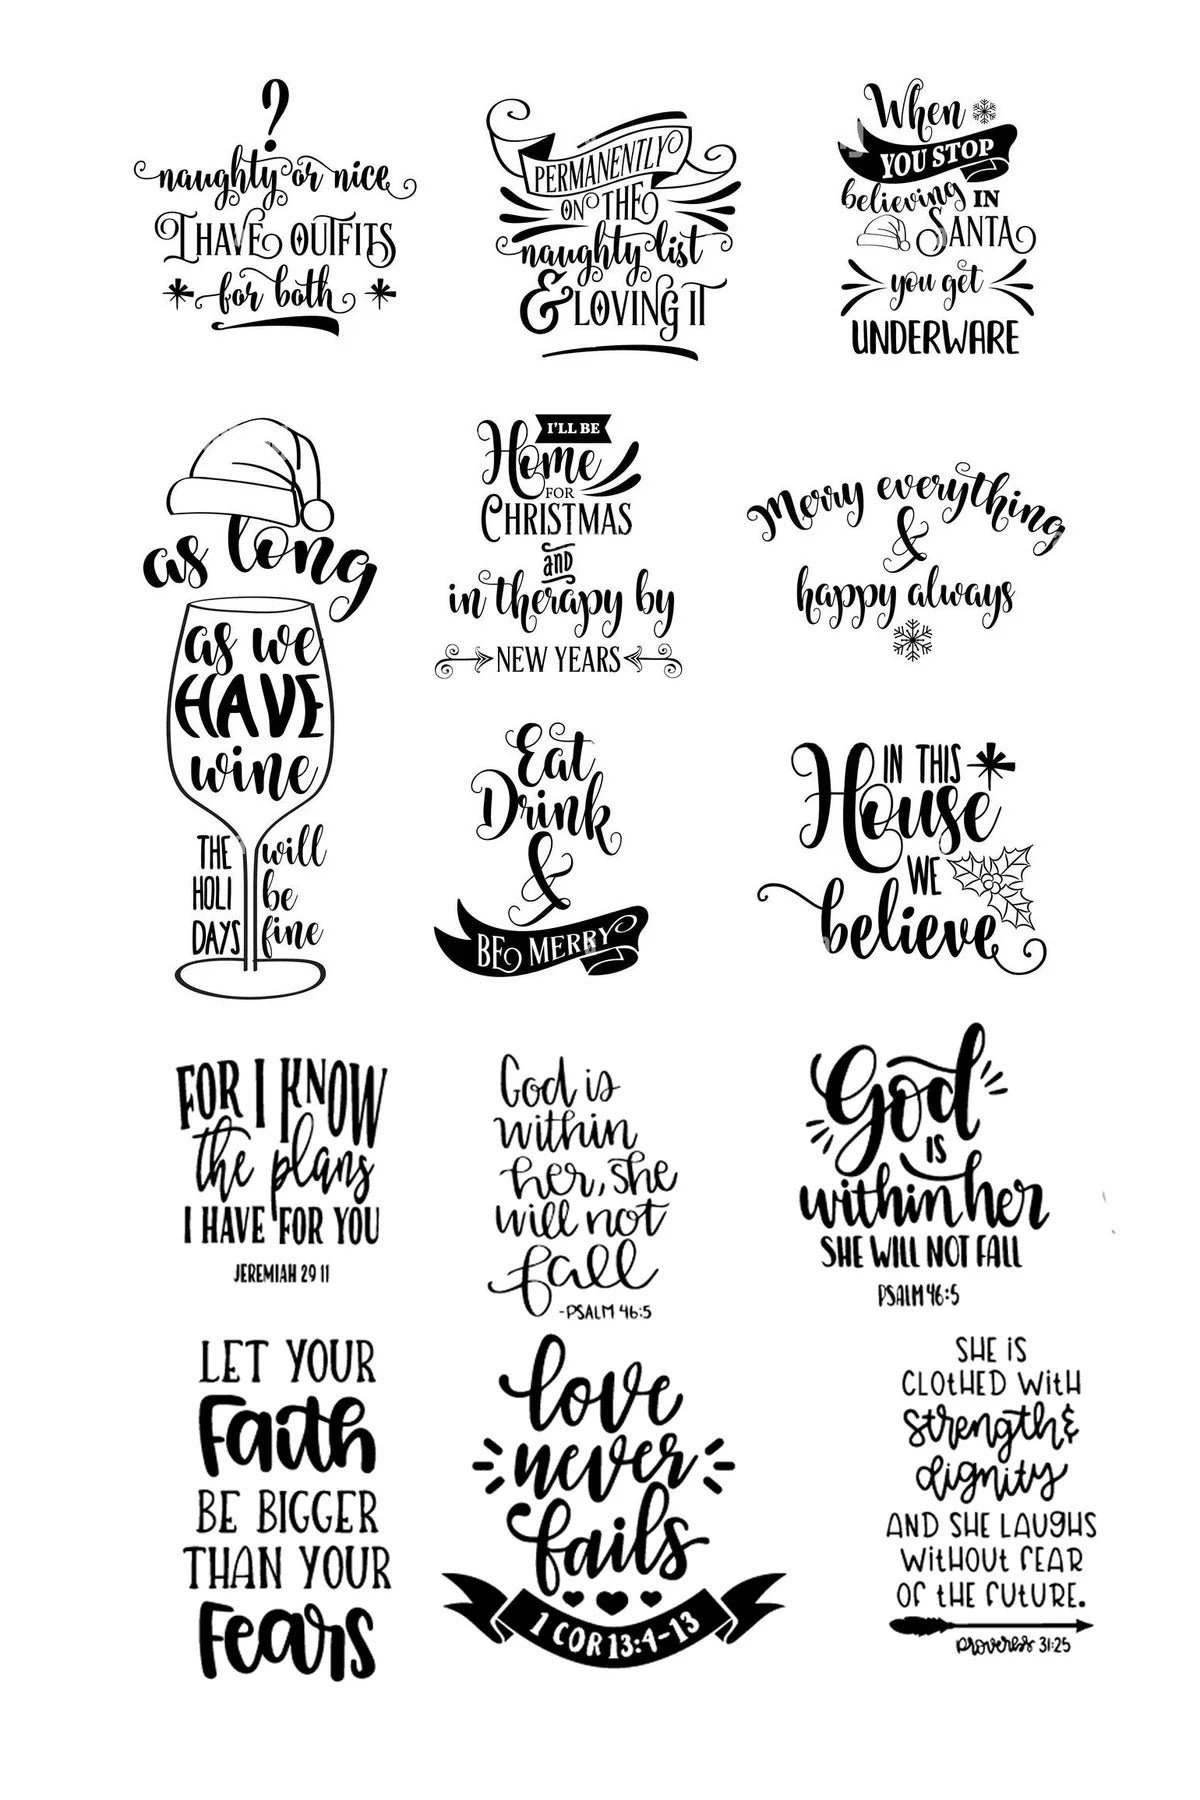 ?
naughty or nice
I HAVE OUTFITS
for both
PERMANENTLY
ON THE
naughty list
& LOVING IT
When
YOU STOP
believing IN
SANTA
you get
UNDERWARE
as long
as we
HAVE
wine
THE
HOLI
DAYS
will
be
fine
I'LL BE
Home
FOR
CHRISTMAS
and
in therapy by
NEW YEARS
Merry everything
&
happy always
Eat
Drink
&
BE MERRY
IN THIS
House
WE
believe
FOR I KNOW
the plans
I HAVE FOR YOU
JEREMIAH 29 11
God is
within
her, she
will not
fall
-PSALM 46:5
God
IS
within her
SHE WILL NOT FALL
PSALM 46:5
LET YOUR
Faith
BE BIGGER
THAN YOUR
Fears
love
never
fails
1 COR 13:4-13
SHE iS
CLOTHED WITH
strength &
dignity
AND SHE LAUGHS
WITHOUT FEAR
OF THE FUTURE.
proverbs 31:25